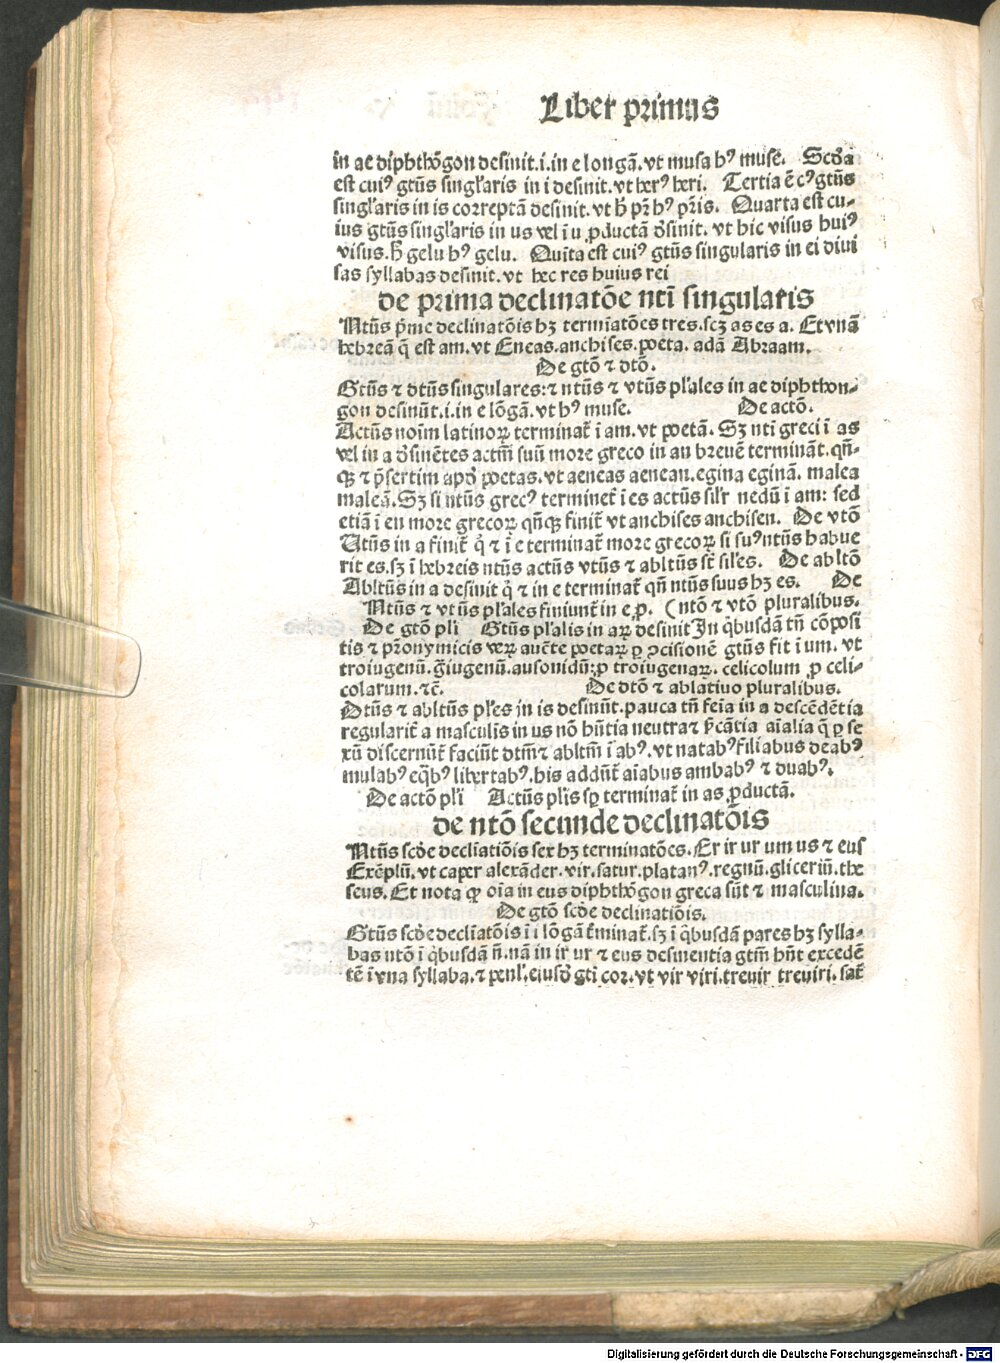 Liber primus
in ae diphthõgon desinit.i.in e longã.vt musa hꝰ muse. Scd̃a
est cuiꝰ gtũs singl'aris in i desinit.vt herꝰ heri. Tertia ẽ cꝰ gtũs
singl'aris in is correptã desinit. vt h̃ pr̃ hꝰ pr̃is. Quarta est cu-
ius gtũs singl'aris in us vel ĩ u ꝓductã d̃sinit. vt hic visus huiꝰ
visus.h̃ gelu hꝰ gelu. Quĩta est cuiꝰ gtũs singularis in ei diui
sas syllabas desinit.vt hec res huius rei
de prima declinatõe ntĩ singularis
Ntũs p̃me declinatõis hꝫ termĩatões tres.scꝫ as es a. Et vnã
hebreã q̃ est am.vt Eneas.anchises.poeta. adã Abraam.
De gtõ ⁊ dtõ.
Gtũs ⁊ dtũs singulares:⁊ ntũs ⁊ vtũs pl'ales in ae diphthon-
gon desinũt.i.in e lõgã.vt hꝰ muse. De actõ.
Actũs noĩm latinoꝝ terminat̃ ĩ am.vt poetã. Sꝫ ntĩ greci ĩ as
vel in a d̃sinẽtes actm̃ suũ more greco in an breuẽ terminãt.qñ-
qꝫ ⁊ p̃sertim apd̃ poetas.vt aeneas aenean.egina eginã. malea
maleã.Sꝫ si ntũs grecꝰ terminet̃ ĩ es actũs sil'r nedũ ĩ am: sed
etiã ĩ en more grecoꝝ qñqꝫ finit̃ vt anchises anchisen. De vtõ
Utũs in a finit̃ q̃ ⁊ ĩ e terminat̃ more grecoꝝ si suꝰ ntũs habue
rit es.sꝫ ĩ hebreis ntũs actũs vtũs ⁊ abltũs st̃ sil'es. De abltõ
Abltũs in a desinit q̃ ⁊ in e terminat̃ qñ ntũs suus hꝫ es. De
Ntũs ⁊ vtũs pl'ales finiunt̃ in e ꝓ. (ntõ ⁊ vtõ pluralibus.
De gtõ pl'i Gtũs pl'alis in aꝝ desinit In q̃busdã tñ cõposi
tis ⁊ pr̃onymicis veꝝ auct̃e poetaꝝ ꝑ ꝯcisionẽ gtũs fit ĩ um. vt
troiugenũ.g̃iugenũ.ausonidũ:ꝓ troiugenaꝝ. celicolum ꝓ celi-
colarum.⁊c̃. De dtõ ⁊ ablatiuo pluralibus.
Dtũs ⁊ abltũs pl'es in is desinũt.pauca tñ feĩa in a descẽdẽtia
regularit̃ a masculis in us nõ hñtia neutra ⁊ p̃cãtia aĩalia q̃ ꝑ se
xũ discernũt̃ faciũt dtm̃ ⁊ abltm̃ ĩ abꝰ.vt natabꝰ filiabus deabꝰ
mulabꝰ eq̃bꝰ libertabꝰ.his addũt̃ aĩabus ambabꝰ ⁊ duabꝰ.
De actõ pl'i Actũs pl'is sꝑ terminat̃ in as ꝓductã.
de ntõ secunde declinatõis
Ntũs scd̃e declĩatiõis sex hꝫ terminatões.Er ir ur um us ⁊ eus
Exẽplũ.vt caper alexãder.vir.satur.platanꝰ.regnũ.gliceriũ.the
seus.Et nota qꝙ oĩa in eus diphthõgon greca sũt ⁊ masculina.
De gtõ scd̃e declinatiõis.
Gtũs scd̃e declĩatõis ĩ i lõgã t̃minat̃.sꝫ ĩ q̃busdã pares hꝫ sylla-
bas ntõ ĩ q̃busdã ñ.nã in ir ur ⁊ eus desinentia gtm̃ hñt excedẽ
tẽ ĩ vna syllaba.⁊ penl'.eiusd̃ gtĩ cor.vt vir viri.treuir treuiri.sat̃
Digitalisierung gefördert durch die Deutsche Forschungsgemeinschaft - DFG